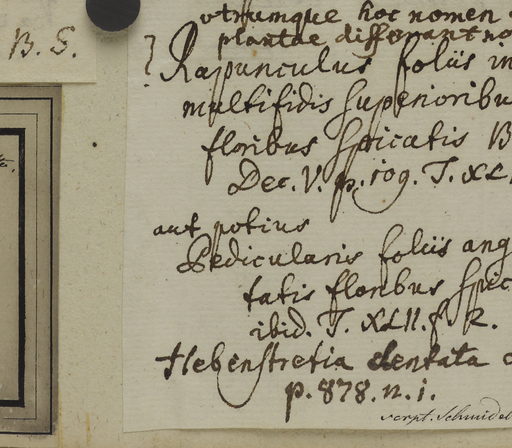 B. S.
utrumque hoc nomen
plantae differant no
Rapunculus foliis in
multifidis superioribu
floribus spicatis B
Dec. V. p. 109. T. XLI
aut potius
Pedicularis foliis ang
tatis floribus spic
ibid. T. XLII. f. 2.
Hebenstretia dentata
p. 878. n. 1.
script. Schmidel